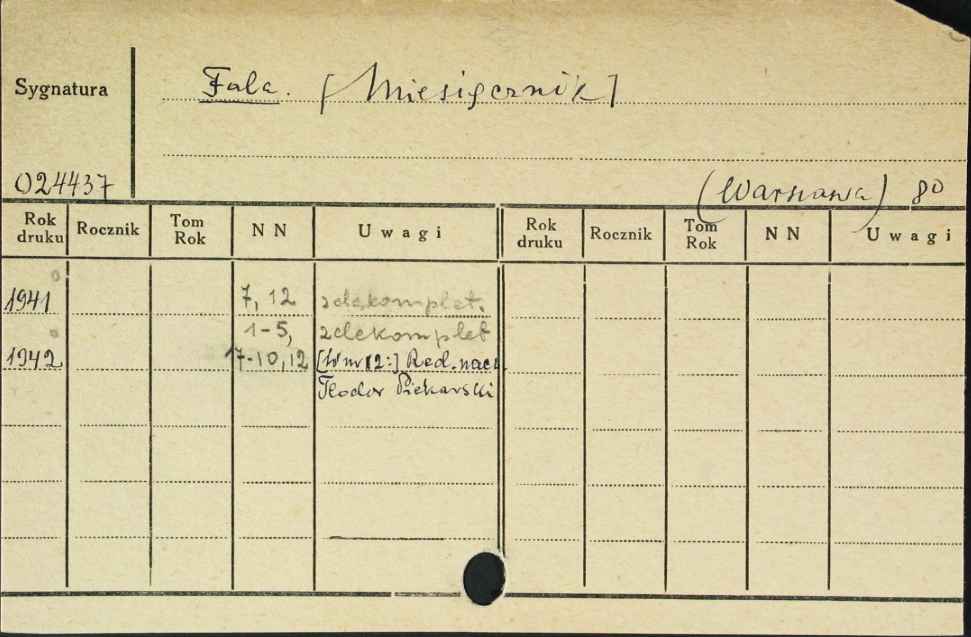 Sygnatura
Fala. [Miesięcznik]
024437
(Warszawa) 8º
Rok druku Rocznik Tom Rok NN Uwagi Rok druku Rocznik Tom Rok NN Uwagi
1941 7, 12 zdekomplet.
1-5, zdekomplet
1942 7-10, 12 [W nr 12:] Red. nacz.
Teodor Piekarski